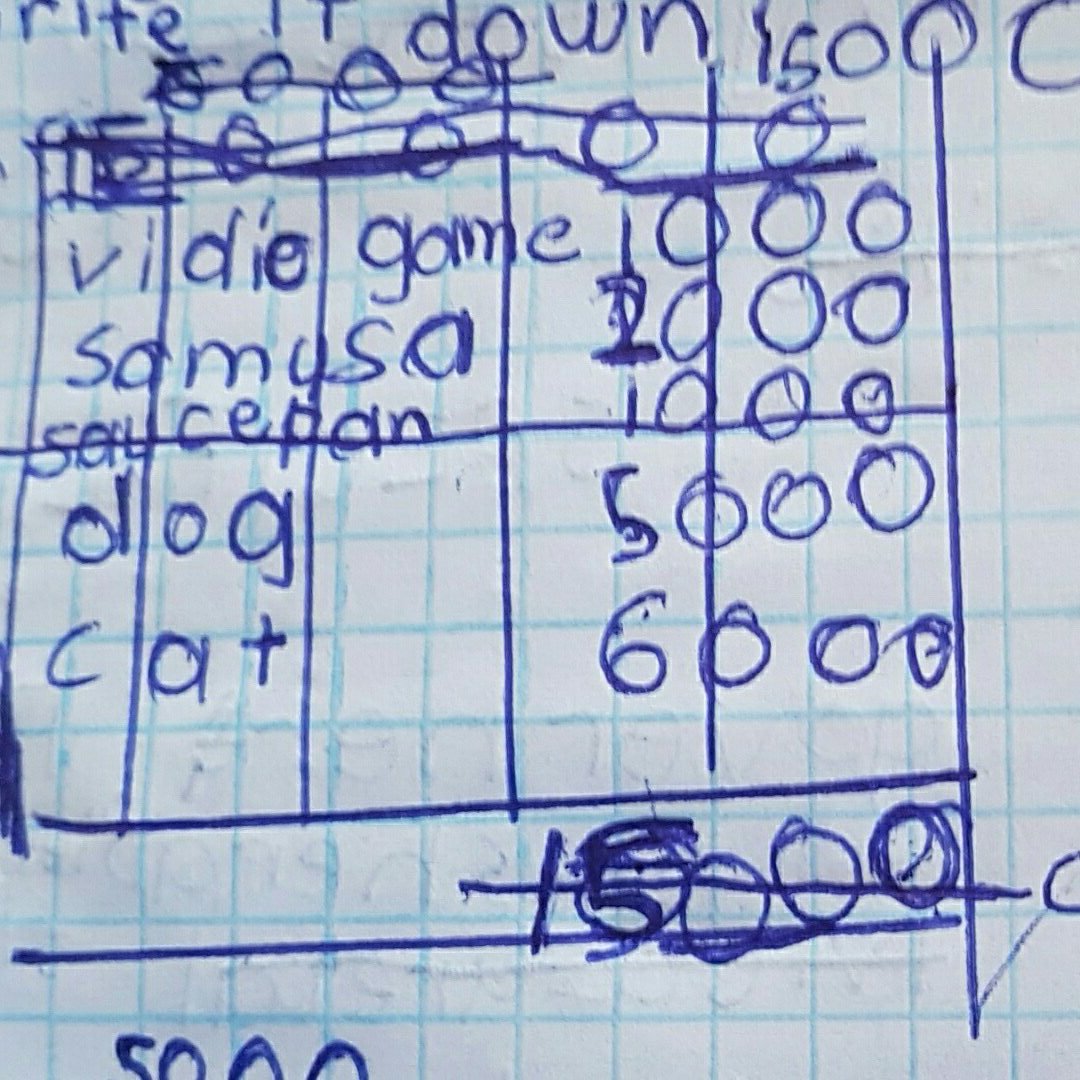 rite it down 1500
5000
vidio game 1000
samusa 2000
saucepan 1000
dog 5000
cat 6000
15000
5000